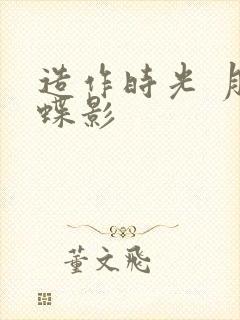 造作時光
蝶影
董文飛